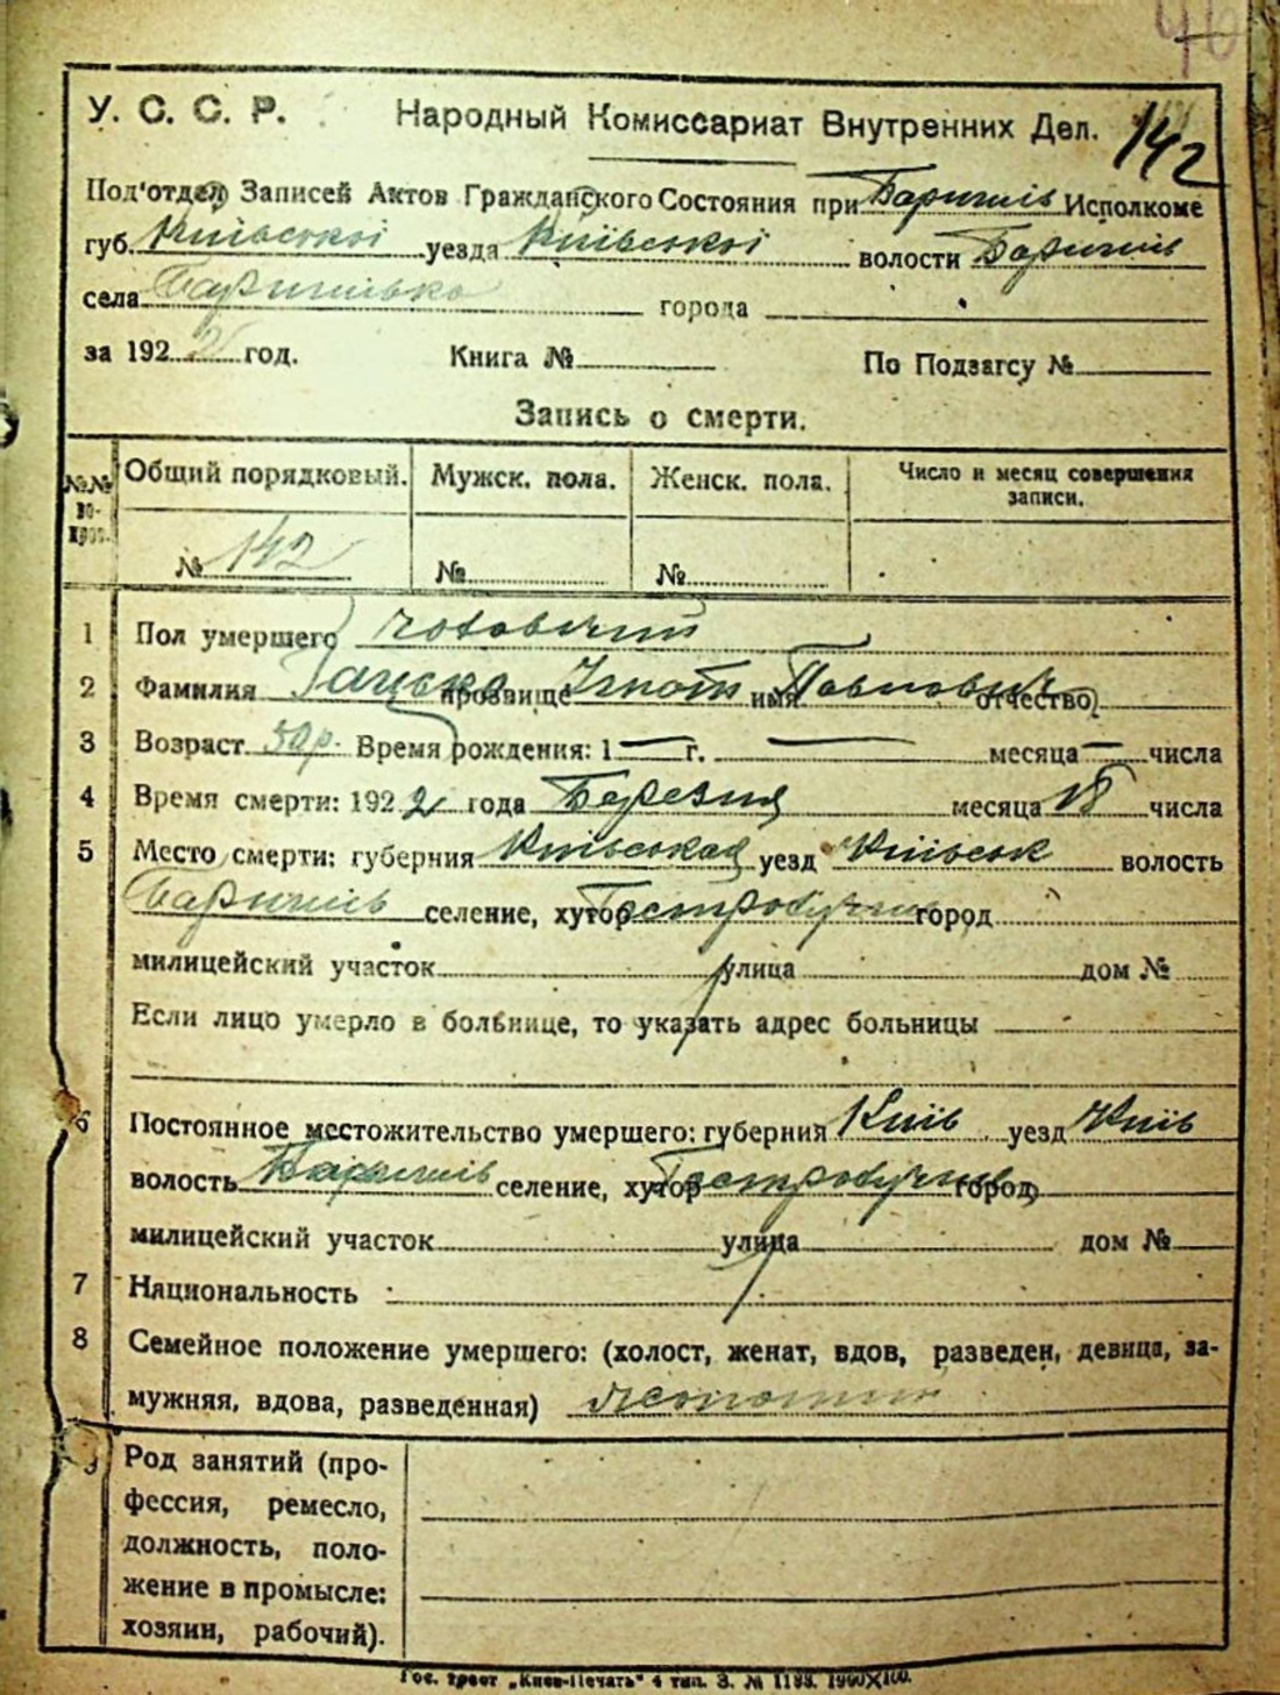 У. С. С. Р. Народный Комиссариат Внутренних Дел. 142
Под'отдел Записей Актов Гражданского Состояния при Баришів Исполкоме
губ. Київської уезда Київської волости Баришів
села города
за 1922 год. Книга № По Подзагсу №
Запись о смерти.
№№ во-прос. Общий порядковый. Мужск. пола. Женск. пола. Число и месяц совершения записи.
№ 142 № №
1 Пол умершего чоловичий
2 Фамилия прозвище Ігнат имя Павлович отчество
3 Возраст 50 р. Время рождения: 1— г. — месяца — числа
4 Время смерти: 1922 года Березня месяца 18 числа
5 Место смерти: губерния Київская уезд Київськ волость
Баришів селение, хутор город
милицейский участок улица дом №
Если лицо умерло в больнице, то указать адрес больницы
6 Постоянное местожительство умершего: губерния Київ уезд Київ
волость Баришів селение, хутор город
милицейский участок улица дом №
7 Национальность
8 Семейное положение умершего: (холост, женат, вдов, разведен, девица, за-
мужняя, вдова, разведенная)
Род занятий (про-
фессия, ремесло,
должность, поло-
жение в промысле:
хозяин, рабочий).
Гос. трест „Киев-Печать" 4 тип. З. № 1133. 1900Х100.